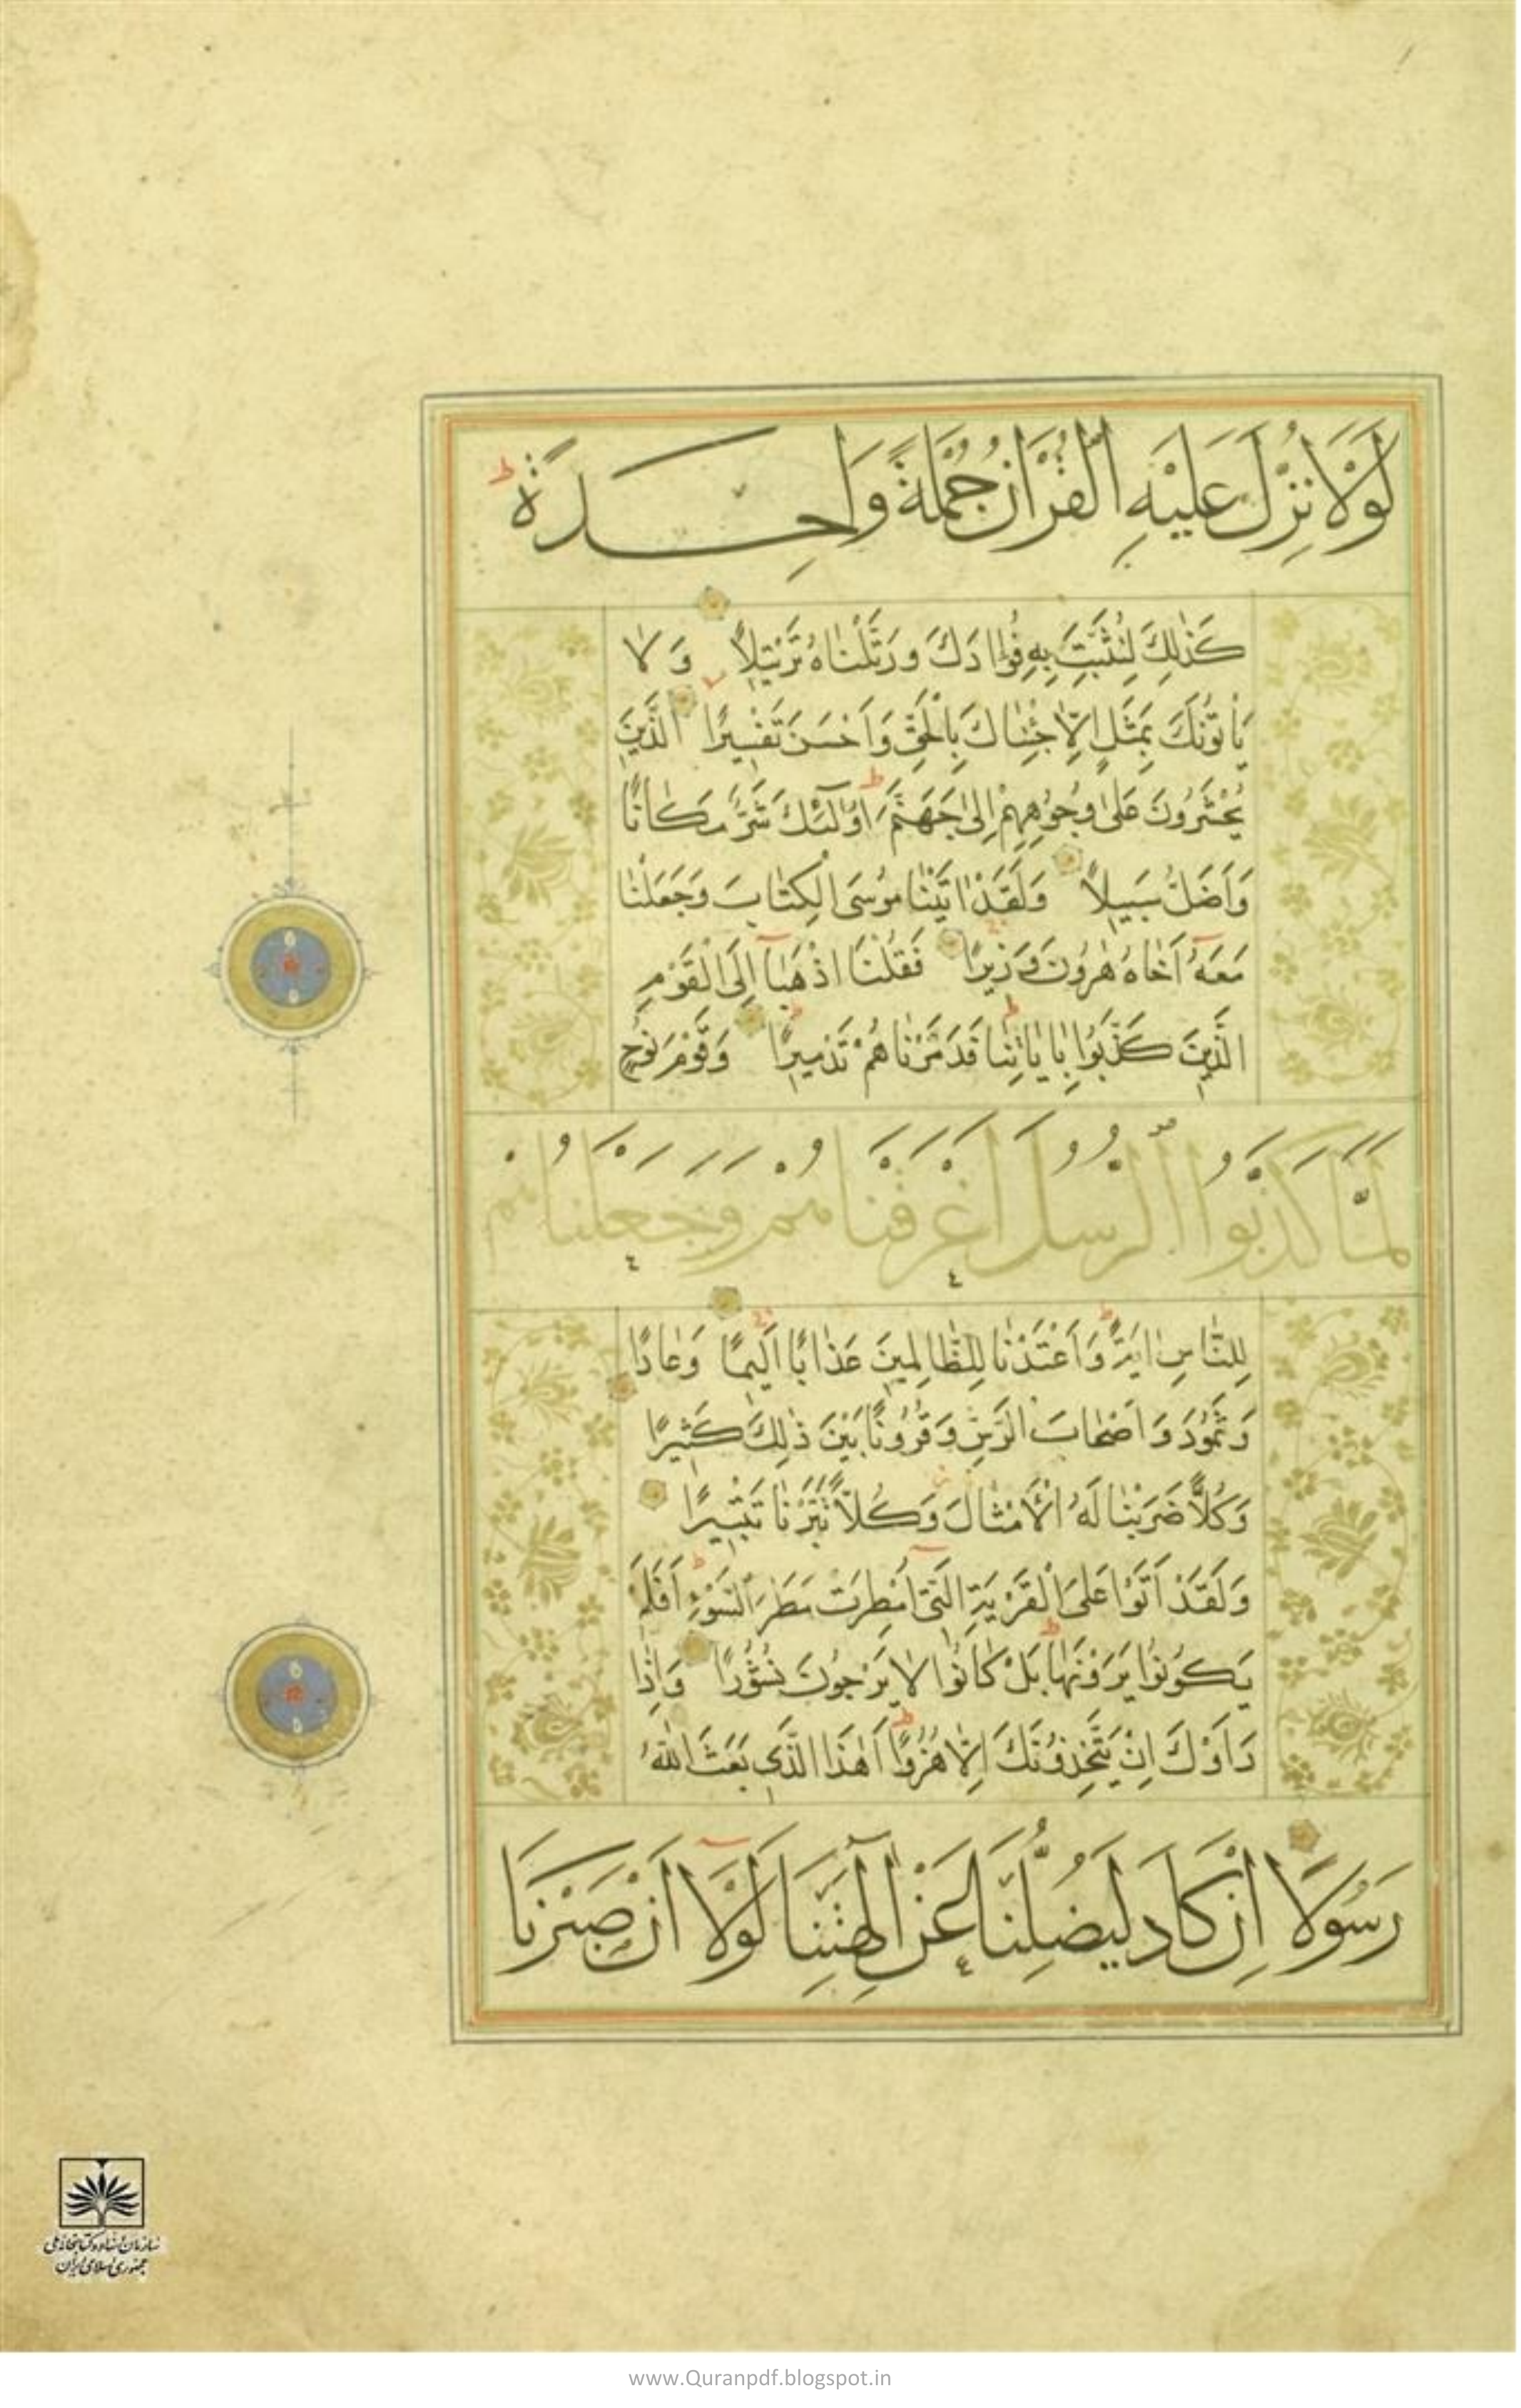 لَوْلَا نُزِّلَ عَلَيْهِ الْقُرْاٰنُ جُمْلَةً وَاحِدَةً ط
كَذٰلِكَ لِنُثَبِّتَ بِهِ فُؤٰادَكَ وَرَتَّلْنٰاهُ تَرْتِيلًا وَلٰا
يَأْتُونَكَ بِمَثَلٍ اِلّٰا جِئْنٰاكَ بِالْحَقِّ وَاَحْسَنَ تَفْسِيرًا الَّذِينَ
يُحْشَرُونَ عَلىٰ وُجُوهِهِمْ اِلىٰ جَهَنَّمَ ط اُولٰٓئِكَ شَرٌّ مَكٰانًا
وَاَضَلُّ سَبِيلًا وَلَقَدْ اٰتَيْنٰا مُوسَى الْكِتٰابَ وَجَعَلْنٰا
مَعَهُ اَخٰاهُ هٰرُونَ وَزِيرًا فَقُلْنَا اذْهَبٰآ اِلَى الْقَوْمِ
الَّذِينَ كَذَّبُوا بِاٰيٰاتِنٰا ط فَدَمَّرْنٰاهُمْ تَدْمِيرًا وَقَوْمَ نُوحٍ
لَمَّا كَذَّبُوا الرُّسُلَ اَغْرَقْنَاهُمْ وَجَعَلْنَاهُمْ
لِلنّٰاسِ اٰيَةً ط وَاَعْتَدْنٰا لِلظّٰالِمِينَ عَذٰابًا اَلِيمًا وَعٰادًا
وَثَمُودَ وَاَصْحٰابَ الرَّسِّ وَقُرُونًا بَيْنَ ذٰلِكَ كَثِيرًا
وَكُلًّا ضَرَبْنٰا لَهُ الْاَمْثٰالَ وَكُلًّا تَبَّرْنٰا تَتْبِيرًا
وَلَقَدْ اَتَوْا عَلَى الْقَرْيَةِ الَّتِىٓ اُمْطِرَتْ مَطَرَ السَّوْءِ ط اَفَلَمْ
يَكُونُوا يَرَوْنَهٰا ط بَلْ كٰانُوا لٰا يَرْجُونَ نُشُورًا وَاِذٰا
رَاَوْكَ اِنْ يَتَّخِذُونَكَ اِلّٰا هُزُوًا ط اَهٰذَا الَّذِي بَعَثَ اللّٰهُ
رَسُولًا اِنْ كَادَ لَيُضِلُّنَا عَنْ اٰلِهَتِنَا لَوْلَآ اَنْ صَبَرْنَا
سازمان اسناد و کتابخانه ملی
جمهوری اسلامی ایران
www.Quranpdf.blogspot.in